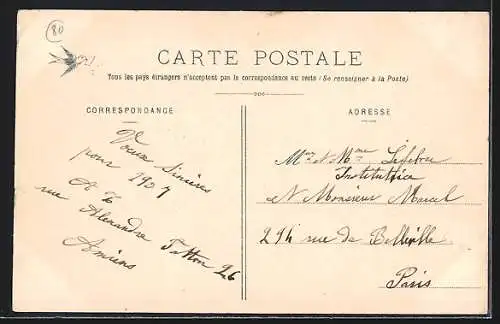 80
CARTE POSTALE
Tous les pays étrangers n'acceptent pas la correspondance au recto (Se renseigner à la Poste)
CORRESPONDANCE
Voeux sincères
pour 1907
rue Alexandre Fatton 26
Amiens
ADRESSE
Mr et Mme Lefebvre
Institutrice
et Monsieur Marcel
294 rue de Belleville
Paris